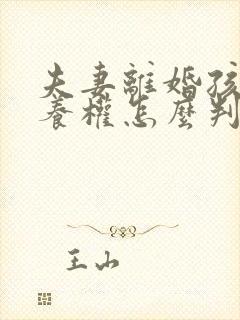 夫妻離婚孩
養權怎麼判
王山